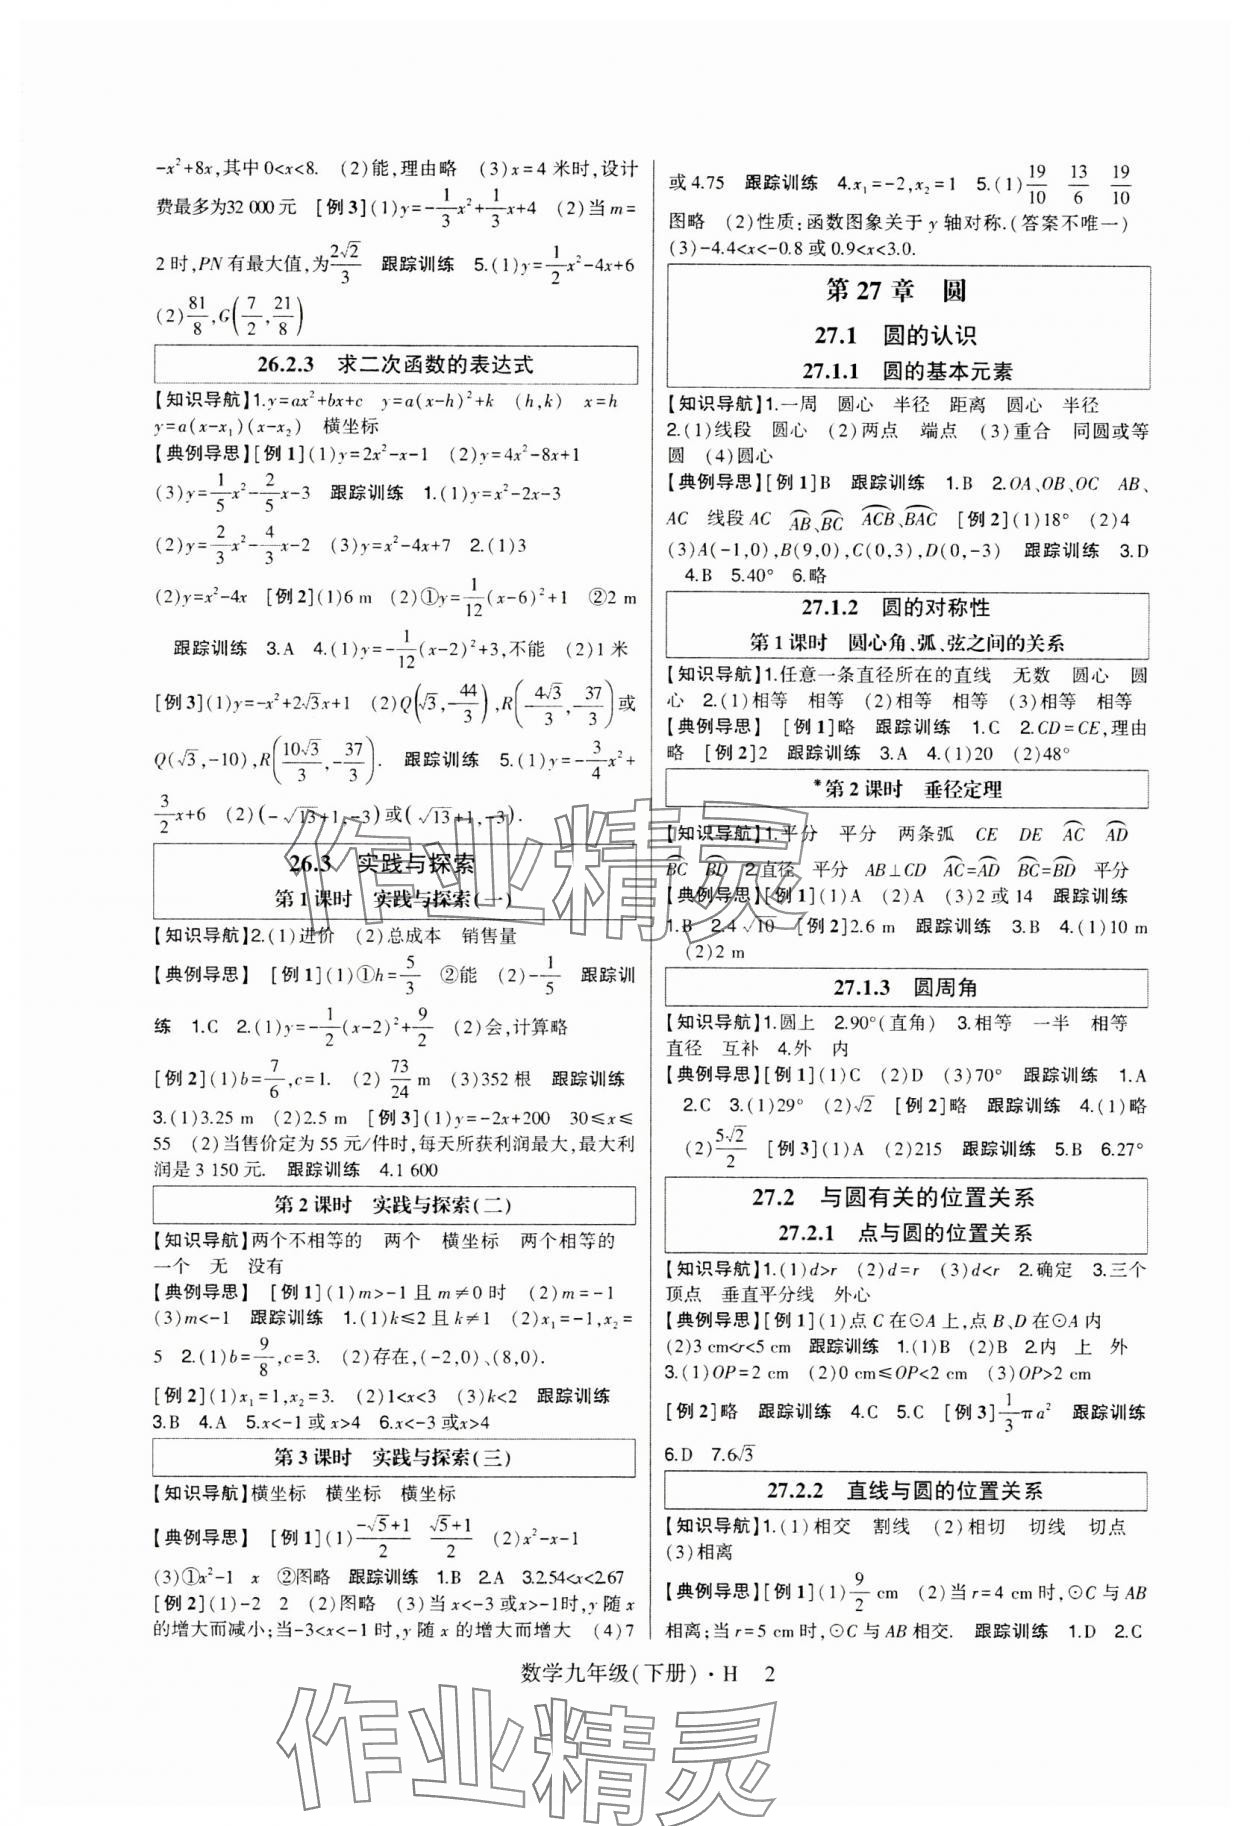 -x²+8x,其中0<x<8. (2)能,理由略 (3)x=4 米时,设计
费最多为32 000元 [例3](1)y=-1/3x²+1/3x+4 (2)当m=
2时,PN有最大值,为2√2/3 跟踪训练 5.(1)y=1/2x²-4x+6
(2)81/8,G(7/2,21/8)
26.2.3 求二次函数的表达式
【知识导航】1.y=ax²+bx+c y=a(x-h)²+k (h,k) x=h
y=a(x-x₁)(x-x₂) 横坐标
【典例导思】[例1](1)y=2x²-x-1 (2)y=4x²-8x+1
(3)y=1/5x²-2/5x-3 跟踪训练 1.(1)y=x²-2x-3
(2)y=2/3x²-4/3x-2 (3)y=x²-4x+7 2.(1)3
(2)y=x²-4x [例2](1)6 m (2)①y=1/12(x-6)²+1 ②2 m
跟踪训练 3.A 4.(1)y=-1/12(x-2)²+3,不能 (2)1米
[例3](1)y=-x²+2√3x+1 (2)Q(√3,-44/3),R(-4√3/3,-37/3)或
Q(√3,-10),R(10√3/3,-37/3). 跟踪训练 5.(1)y=-3/4x²+
3/2x+6 (2)(-√13+1,-3)或(√13+1,-3).
26.3 实践与探索
第1课时 实践与探索(一)
【知识导航】2.(1)进价 (2)总成本 销售量
【典例导思】 [例1](1)①h=5/3 ②能 (2)-1/5 跟踪训
练 1.C 2.(1)y=-1/2(x-2)²+9/2 (2)会,计算略
[例2](1)b=7/6,c=1. (2) 73/24 m (3)352根 跟踪训练
3.(1)3.25 m (2)2.5 m [例3](1)y=-2x+200 30≤x≤
55 (2)当售价定为55元/件时,每天所获利润最大,最大利
润是3 150元. 跟踪训练 4.1 600
第2课时 实践与探索(二)
【知识导航】两个不相等的 两个 横坐标 两个相等的
一个 无 没有
【典例导思】 [例1](1)m>-1且m≠0时 (2)m=-1
(3)m<-1 跟踪训练 1.(1)k≤2且k≠1 (2)x₁=-1,x₂=
5 2.(1)b=9/8,c=3. (2)存在,(-2,0)、(8,0).
[例2](1)x₁=1,x₂=3. (2)1<x<3 (3)k<2 跟踪训练
3.B 4.A 5.x<-1或x>4 6.x<-3或x>4
第3课时 实践与探索(三)
【知识导航】横坐标 横坐标 横坐标
【典例导思】 [例1](1)(-√5+1)/2 (√5+1)/2 (2)x²-x-1
(3)①x²-1 x ②图略 跟踪训练 1.B 2.A 3.2.54<x<2.67
[例2](1)-2 2 (2)图略 (3)当x<-3或x>-1时,y随x
的增大而减小;当-3<x<-1时,y随x的增大而增大 (4)7
或4.75 跟踪训练 4.x₁=-2,x₂=1 5.(1)19/10 13/6 19/10
图略 (2)性质:函数图象关于y轴对称.(答案不唯一)
(3)-4.4<x<-0.8或0.9<x<3.0.
第27章 圆
27.1 圆的认识
27.1.1 圆的基本元素
【知识导航】1.一周 圆心 半径 距离 圆心 半径
2.(1)线段 圆心 (2)两点 端点 (3)重合 同圆或等
圆 (4)圆心
【典例导思】[例1]B 跟踪训练 1.B 2.OA、OB、OC AB、
AC 线段AC A͡B、B͡C A͡CB、B͡AC [例2](1)18° (2)4
(3)A(-1,0),B(9,0),C(0,3),D(0,-3) 跟踪训练 3.D
4.B 5.40° 6.略
27.1.2 圆的对称性
第1课时 圆心角、弧、弦之间的关系
【知识导航】1.任意一条直径所在的直线 无数 圆心 圆
心 2.(1)相等 相等 (2)相等 相等 (3)相等 相等
【典例导思】 [例1]略 跟踪训练 1.C 2.CD=CE,理由
略 [例2]2 跟踪训练 3.A 4.(1)20 (2)48°
*第2课时 垂径定理
【知识导航】1.平分 平分 两条弧 CE DE A͡C A͡D
B͡C B͡D 2.直径 平分 AB⊥CD A͡C=A͡D B͡C=B͡D 平分
【典例导思】[例1](1)A (2)A (3)2或14 跟踪训练
1.B 2.4√10 [例2]2.6 m 跟踪训练 3.B 4.(1)10 m
(2)2 m
27.1.3 圆周角
【知识导航】1.圆上 2.90°(直角) 3.相等 一半 相等
直径 互补 4.外 内
【典例导思】[例1](1)C (2)D (3)70° 跟踪训练 1.A
2.C 3.(1)29° (2)√2 [例2]略 跟踪训练 4.(1)略
(2)5√2/2 [例3](1)A (2)215 跟踪训练 5.B 6.27°
27.2 与圆有关的位置关系
27.2.1 点与圆的位置关系
【知识导航】1.(1)d>r (2)d=r (3)d<r 2.确定 3.三个
顶点 垂直平分线 外心
【典例导思】[例1](1)点C在⊙A上,点B、D在⊙A内
(2)3 cm<r<5 cm 跟踪训练 1.(1)B (2)B 2.内 上 外
3.(1)OP=2 cm (2)0 cm≤OP<2 cm (3)OP>2 cm
[例2]略 跟踪训练 4.C 5.C [例3]1/3πa² 跟踪训练
6.D 7.6√3
27.2.2 直线与圆的位置关系
【知识导航】1.(1)相交 割线 (2)相切 切线 切点
(3)相离
【典例导思】[例1](1)9/2 cm (2)当r=4 cm时,⊙C与AB
相离;当r=5 cm时,⊙C与AB相交. 跟踪训练 1.D 2.C
数学九年级(下册)·H 2
作业精灵
作业精灵